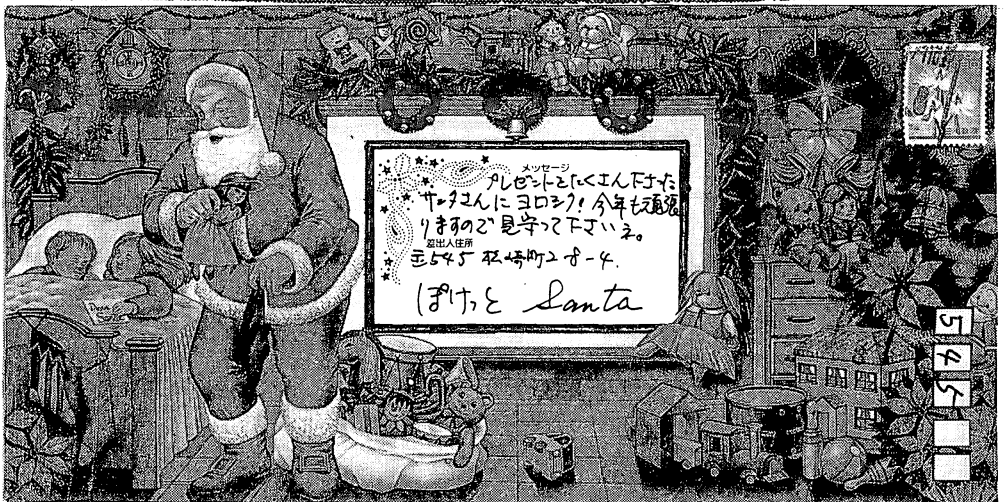 メッセージ
プレゼントをたくさん下さった
サンタさんにヨロシク！今年も頑張
りますので見守って下さいネ。
差出人住所
〒545 松崎町2-8-4.
ぽけっと Santa
5
4
5